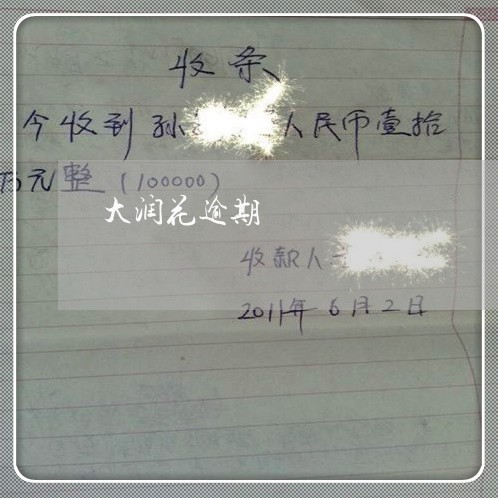 收条
今收到孙 人民币壹拾
万元整(100000)
大润花逾期
收款人
2011年6月2日